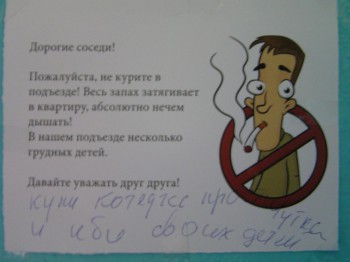 Дорогие соседи!
Пожалуйста, не курите в
подъезде! Весь запах затягивает
в квартиру, абсолютно нечем
дышать!
В нашем подъезде несколько
грудных детей.
Давайте уважать друг друга!
купи котедж
и еби своих детей